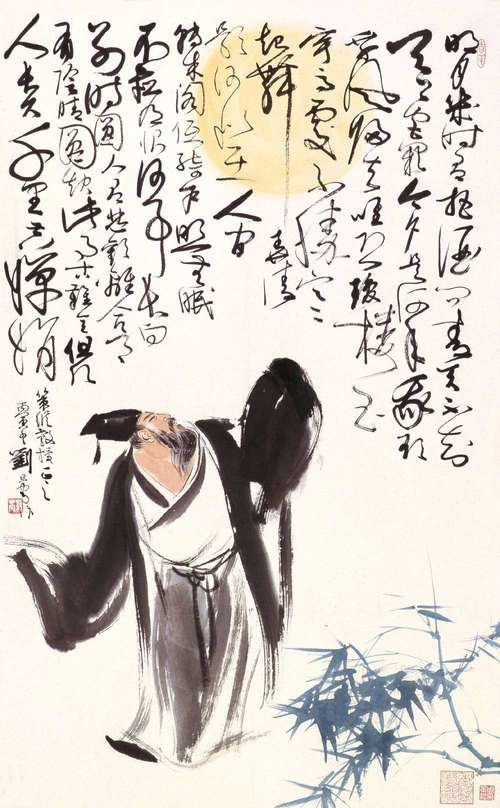 明月幾時有把酒問青天不知
天上宮闕今夕是何年我欲
乘風歸去唯恐瓊樓玉
宇高處不勝寒
起舞弄清
影何似在人間
轉朱閣低綺戶照無眠
不應有恨何事長向
別時圓人有悲歡離合月
有陰晴圓缺此事古難全但願
人長久千里共嬋娟
策縱教授正之
丙寅 劉旦宅